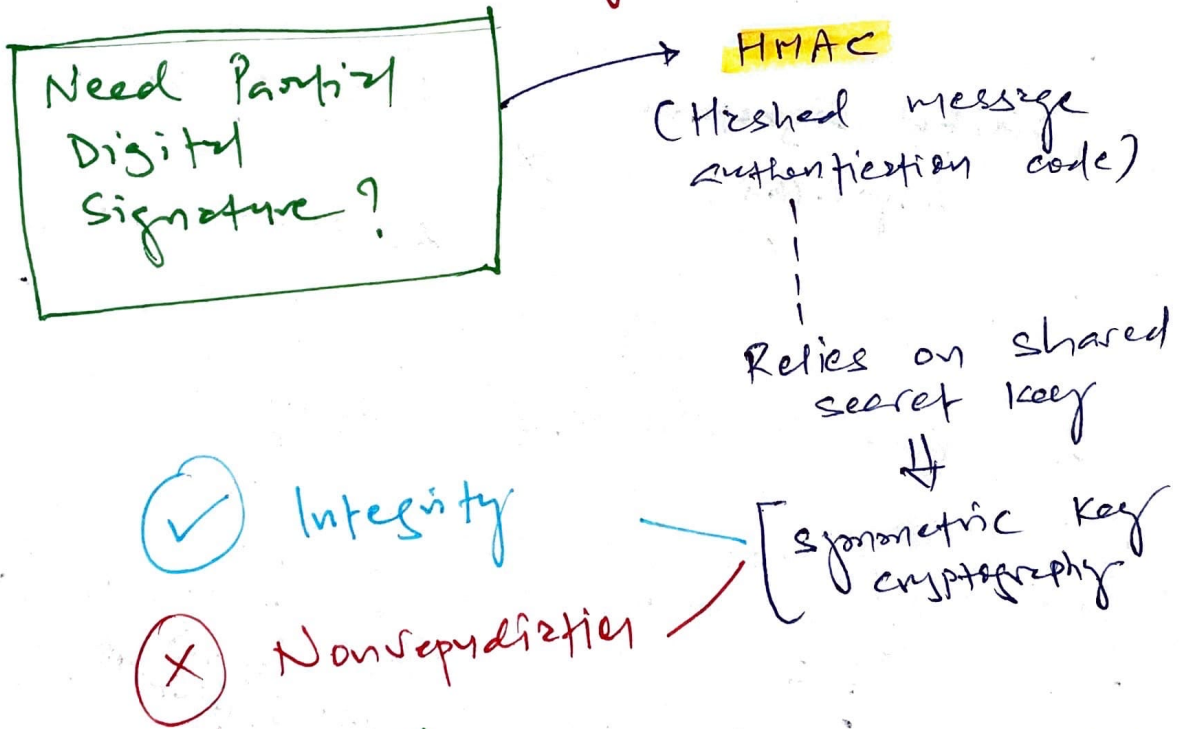 Need Partial
Digital
Signature?
HMAC
(Hashed message
authentication code)
Relies on shared
secret key
[symmetric key
cryptography
✓ Integrity
X Nonrepudiation